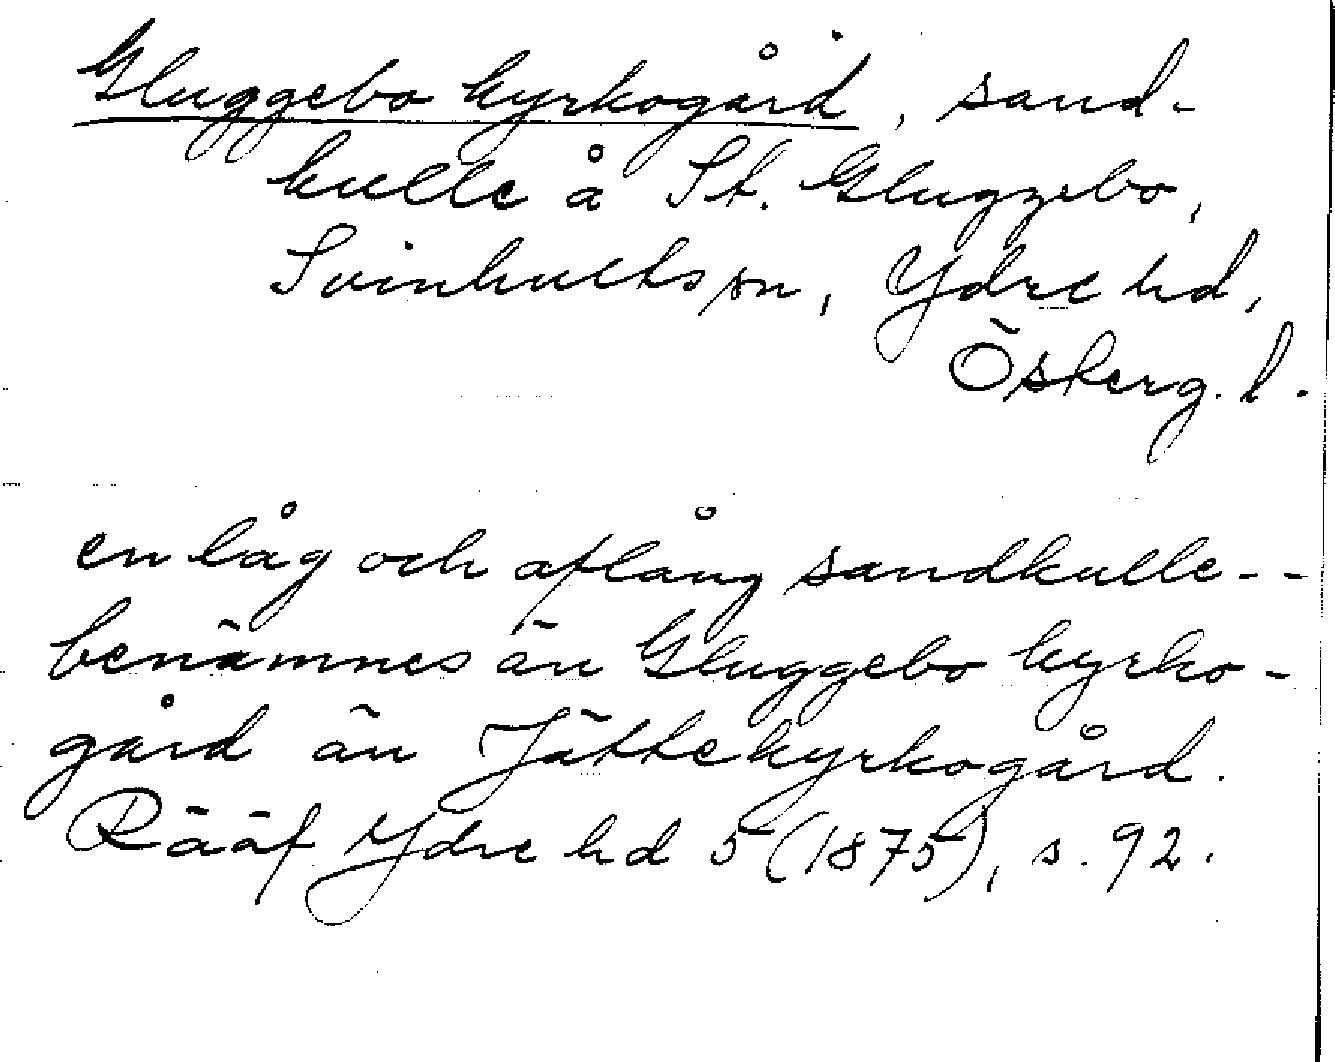 Gluggebo kyrkogård, sand-
kulle å St. Gluggebo,
Svinhults sn, Ydre hd,
Österg. l.
en låg och aflång sandkulle--
benämnes än Gluggebo kyrko-
gård än Jättekyrkogård.
Rääf Ydre hd 5 (1875), s. 92.